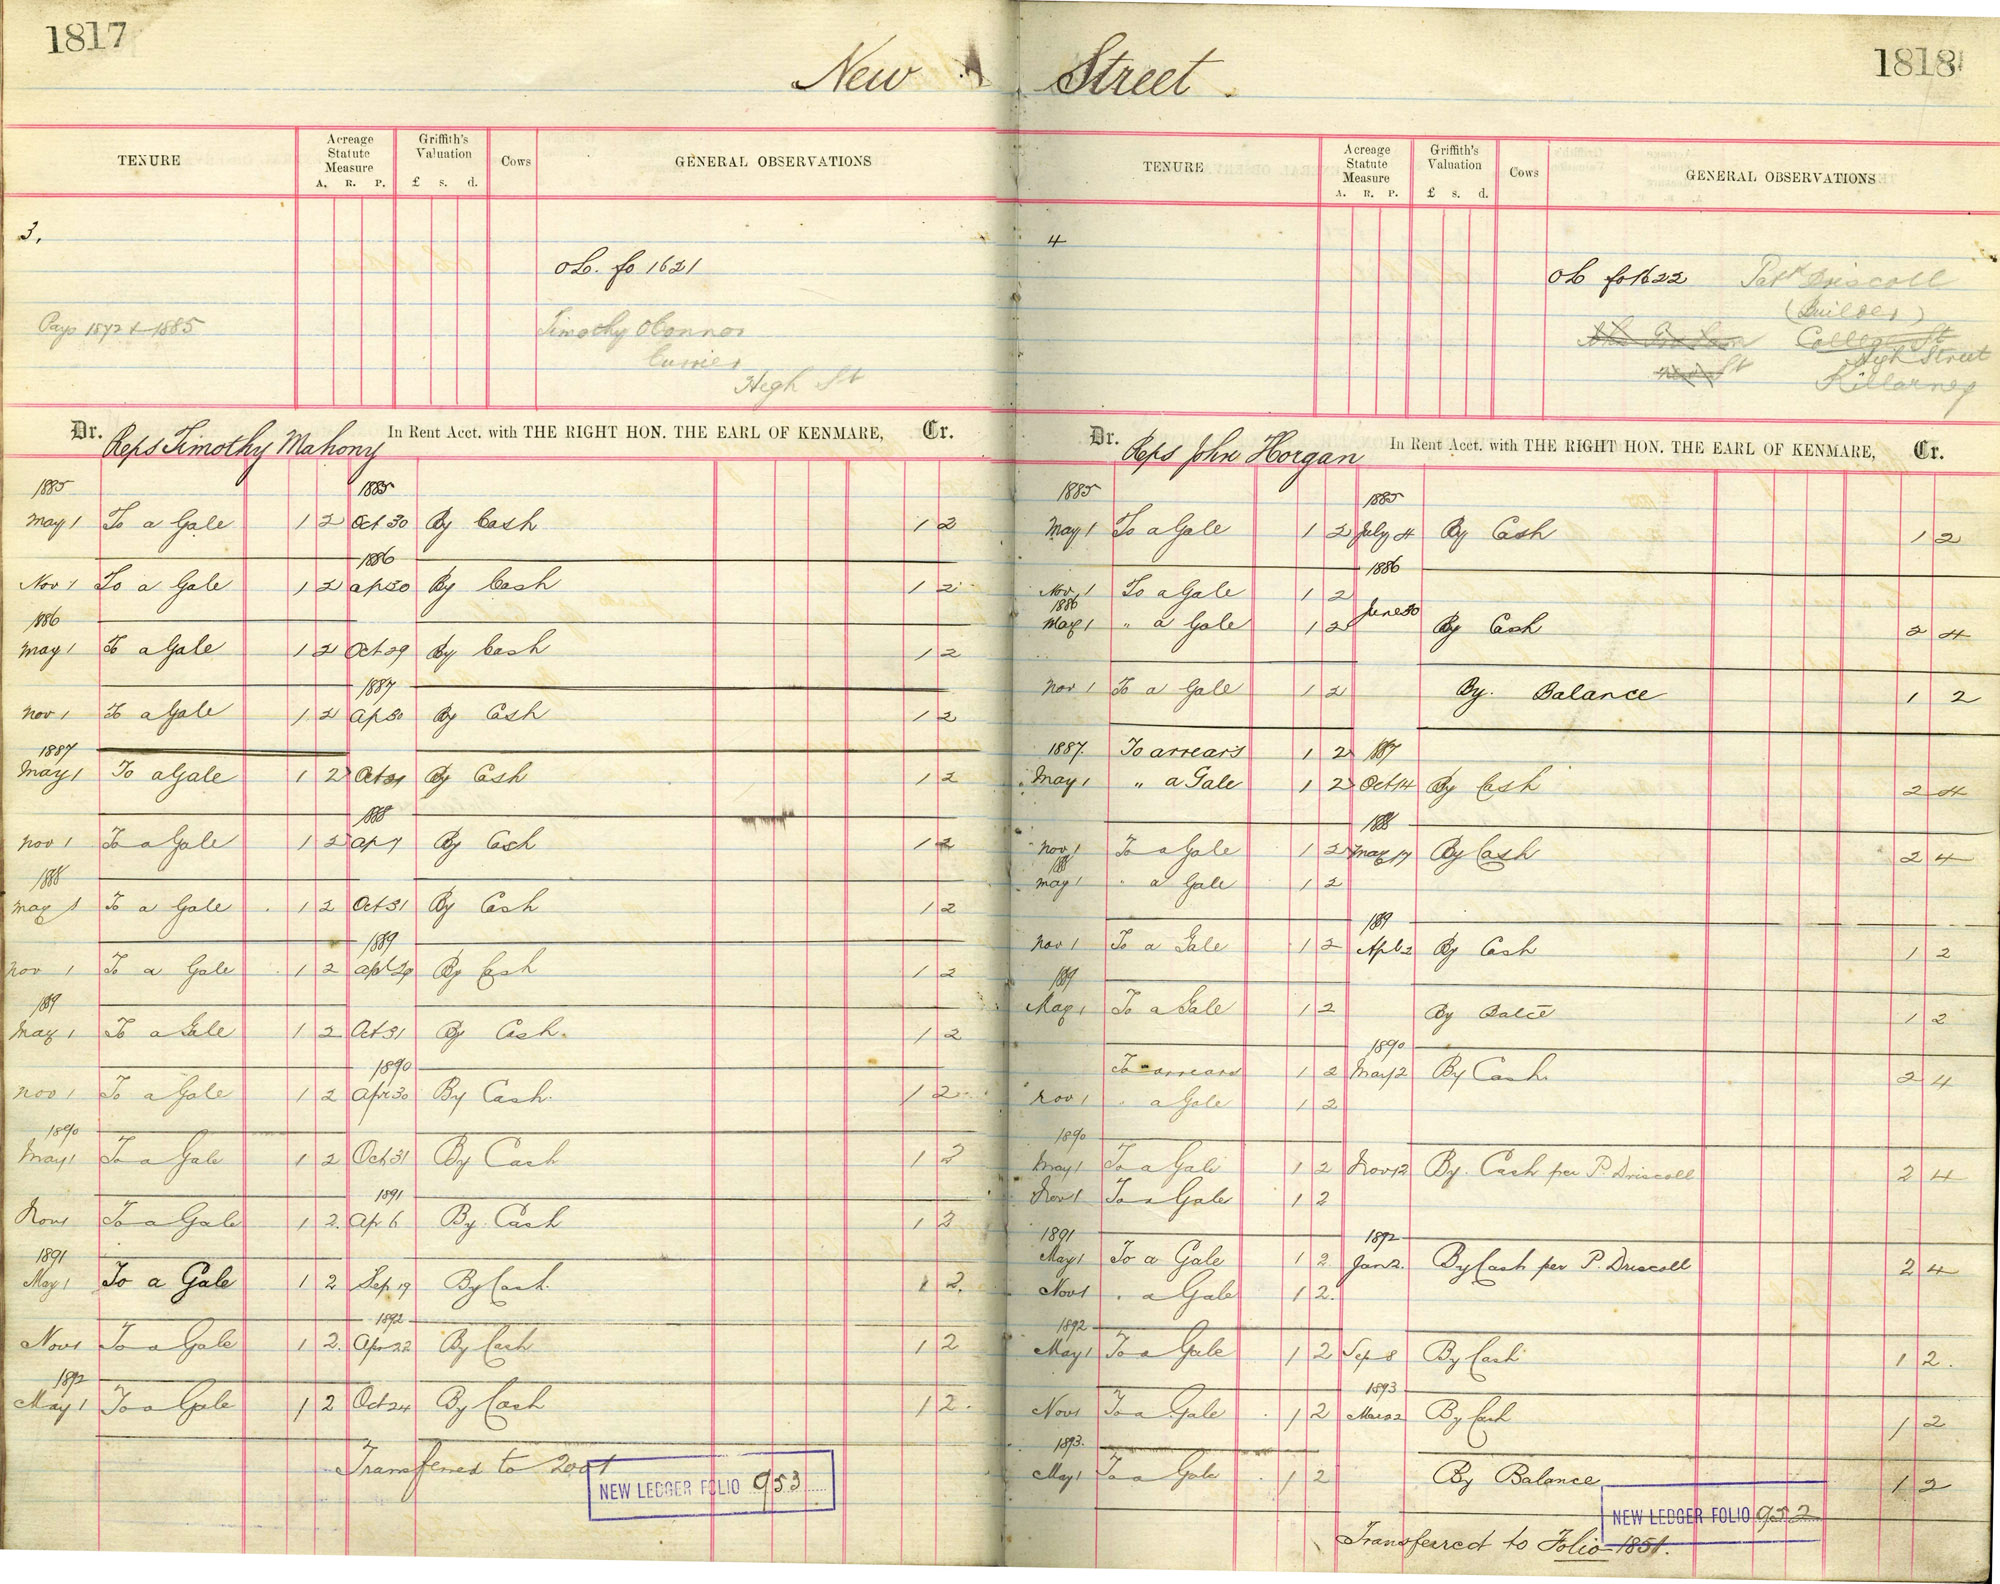 1817
New Street
1818
TENURE
Acreage Statute Measure
A. R. P.
Griffith's Valuation
£ s. d.
Cows
GENERAL OBSERVATIONS
3.
OL. fo 1621
Pays 1872 & 1885
Timothy OConnor
Currier
High St
Dr. Reps Timothy Mahony In Rent Acct. with THE RIGHT HON. THE EARL OF KENMARE, Cr.
1885 1885
May 1 To a Gale 1 2 Oct 30 By Cash 1 2
1886
Nov 1 To a Gale 1 2 ap 30 By Cash 1 2
1886
May 1 To a Gale 1 2 Oct 29 By Cash 1 2
1887
Nov 1 To a Gale 1 2 Ap 30 By Cash 1 2
1887
May 1 To a Gale 1 2 Oct 31 By Cash 1 2
1888
Nov 1 To a Gale 1 2 ap 7 By Cash 1 2
1888
May 1 To a Gale 1 2 Oct 31 By Cash 1 2
1889
Nov 1 To a Gale 1 2 apl 29 By Cash 1 2
1889
May 1 To a Gale 1 2 Oct 31 By Cash. 1 2
1890
Nov 1 To a Gale 1 2 Apr 30 By Cash. 1 2
1890
May 1 To a Gale 1 2 Oct 31 By Cash 1 2
1891
Nov 1 To a Gale 1 2. Ap 6 By Cash 1 2
1891
May 1 To a Gale 1 2 Sep 19 By Cash. 1 2.
1892
Nov 1 To a Gale 1 2. Apr 22 By Cash 1 2
1892
May 1 To a Gale 1 2 Oct 24 By Cash 1 2.
Transferred to 2001
NEW LEDGER FOLIO 953
TENURE
Acreage Statute Measure
A. R. P.
Griffith's Valuation
£ s. d.
Cows
GENERAL OBSERVATIONS
4
OL fo 1622 Patk Driscoll
(Builder)
College St
High Street
St
Killarney
Dr. Reps John Horgan In Rent Acct. with THE RIGHT HON. THE EARL OF KENMARE, Cr.
1885 1885
May 1 To a Gale 1 2 July 4 By Cash 1 2
1886
Nov 1 To a Gale 1 2
1886
May 1 " a Gale 1 2 June 30 By Cash 2 4
Nov 1 To a Gale 1 2 By. Balance 1 2
1887. To arrears 1 2 1887
May 1 " a Gale 1 2 Oct 14 By Cash 2 4
1888
Nov 1 To a Gale 1 2 May 17 By Cash 2 4
1888
May 1 " a Gale 1 2
1889
Nov 1 To a Gale 1 2 Apl 2 By Cash 1 2
1889
May 1 To a Gale 1 2 By Balce 1 2
1890
To arrears 1 2 May 2 By Cash. 2 4
Nov 1 " a Gale 1 2
1890
May 1 To a Gale 1 2 Nov 12 By. Cash per P. Driscoll 2 4
Nov 1 To a Gale 1 2
1891 1892
May 1 To a Gale 1 2 Jan 2. By Cash per P. Driscoll 2 4
Nov 1 " a Gale 1 2.
1892
May 1 To a Gale 1 2 Sep 8 By Cash 1 2.
1893
Nov 1 To a Gale 1 2 Mar 22 By Cash 1 2
1893.
May 1 To a Gale 1 2 By Balance 1 2
NEW LEDGER FOLIO 952
Transferred to Folio 1851.